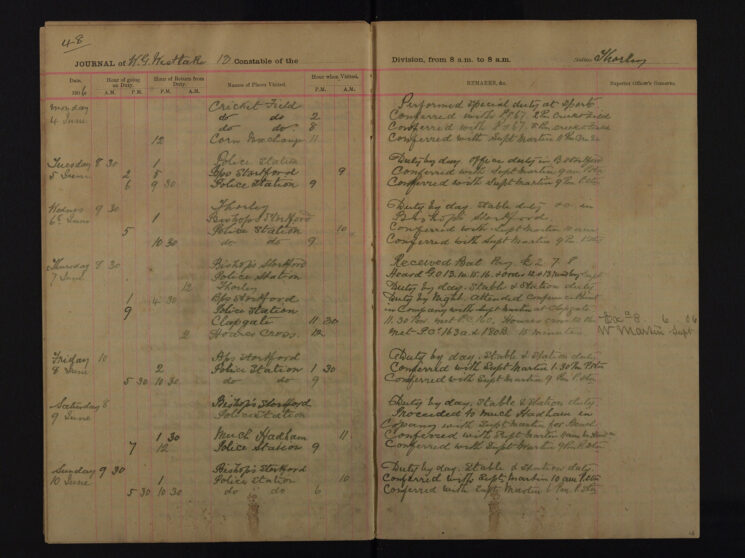 48
JOURNAL of W. G. Westlake 12 Constable of the
Date. Hour of going on Duty. Hour of Return from Duty. Names of Places Visited. Hour when Visited.
1906 A.M. P.M. P.M. A.M. P.M. A.M.
Monday Cricket Field
4 June do do 2
do do 8
12 Corn Exchange 11
Tuesday 8 30 1 Police Station
5 June 2 5 Bps Stortford 9
6 9 30 Police Station 9
Wednes 9 30 Thorley
6 June 1 Bishops Stortford
5 Police Station 10
10 30 do do 9
Thursday 8 30 Bishops Stortford
7 June Police Station
12 Thorley
1 4 30 Bps Stortford
9 Police Station
Clapgate 11 30
2 Hodges Cross 12
Friday 10 Bps Stortford
8 June 2 Police Station 1 30
5 30 10 30 do do 9
Saturday 8 Bishop's Stortford
9 June Police Station
1 30 Much Hadham 11
7 12 Police Station 9
Sunday 9 30 Bishop's Stortford
10 June 1 Police Station 10
5 30 10 30 do do 6
Division, from 8 a.m. to 8 a.m. Station Thorley
REMARKS, &c. Superior Officer's Comments.
Performed special duty at Sports
Conferred with
Conferred with
Conferred with Supt Martin
Duty by day. Office duty in B Stortford
Conferred with Supt Martin 9 am P. Stn
Conferred with Supt Martin 9 Pm P. Stn
Duty by day. Stable duty &c. in
Bishops Stortford.
Conferred with Supt Martin 10 am
Conferred with Supt Martin 9 Pm P Stn
Received Bat Pay £2 7 8
Duty by day. Stable & Station duty
Duty by Night. Attended conference
in Company with Supt Martin at Clapgate
11.30 Pm. met PC
met PC 163 & 180B. 15 minutes
6 06
W Martin Supt
Duty by day. Stable & Station duty
Conferred with Supt Martin 1.30 Pm P. Stn
Conferred with Supt Martin 9 Pm P. Stn
Duty by day. Stable & Station duty
Proceeded to Much Hadham in
Company with Supt Martin
Conferred with Supt Martin
Conferred with Supt Martin 9 Pm P. Stn
Duty by day. Stable & Station duty
Conferred with Supt Martin 10 am P. Stn
Conferred with Supt Martin 6 Pm P. Stn